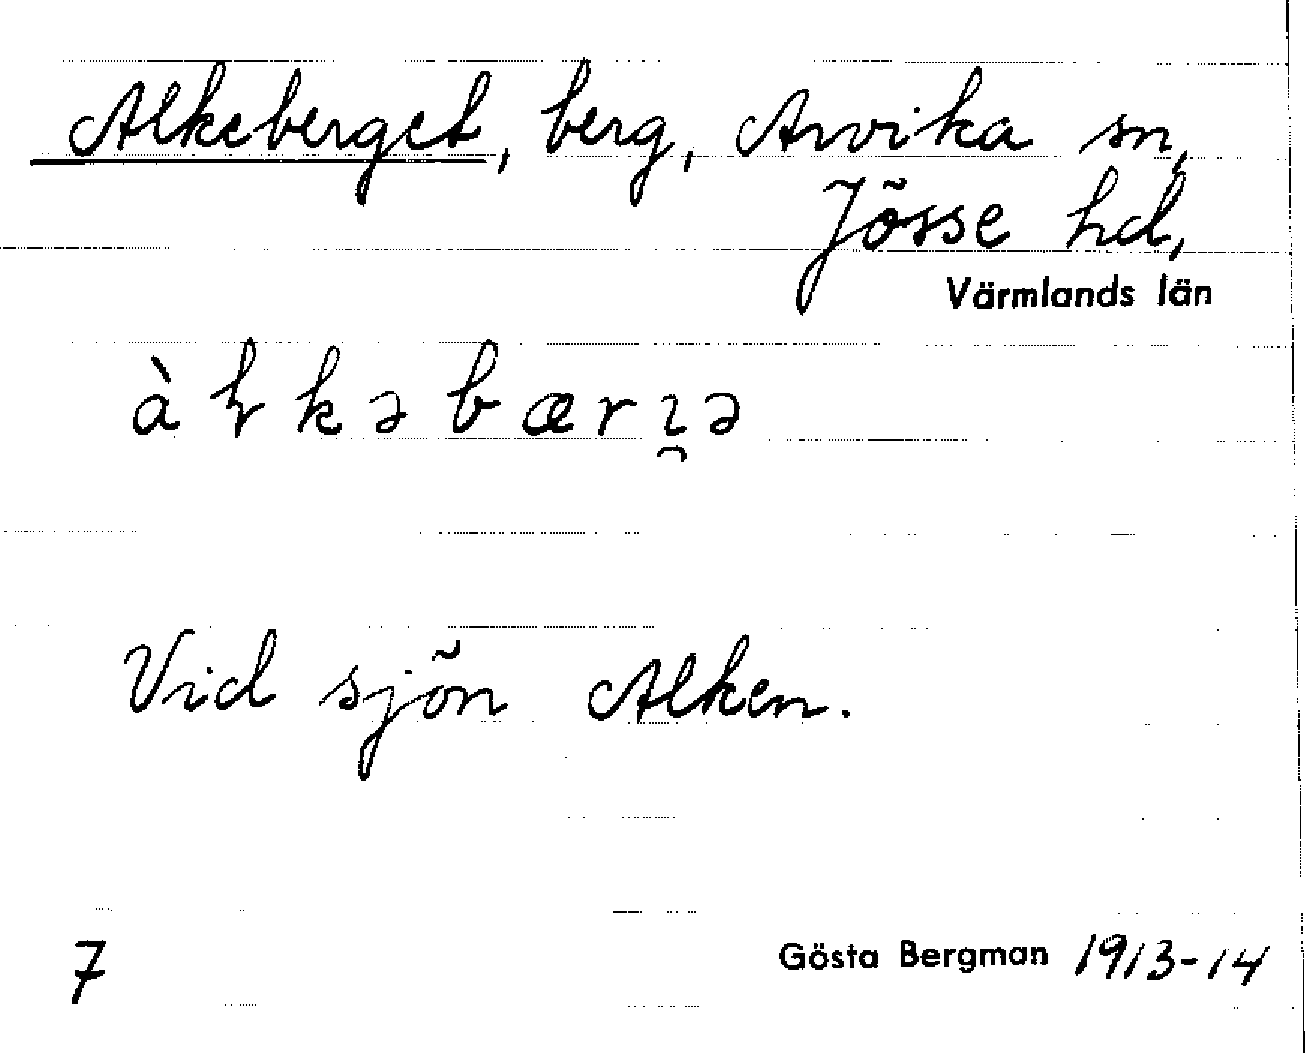 Alkeberget, berg, Arvika sn,
Jösse hd,
Värmlands län
àꝉkəbærı̯ə
Vid sjön Alken.
7 Gösta Bergman 1913-14